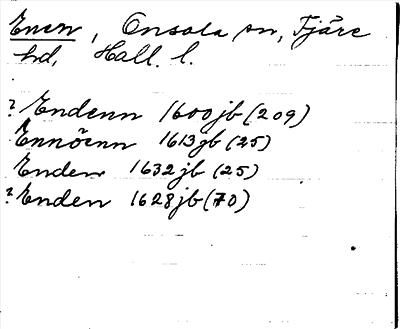 Enen, Onsala sn, Fjäre
hd, Hall. l.
? Endenn 1600 jb (209)
Ennöenn 1613 jb (25)
Enden 1632 jb (25)
? Enden 1628 jb (70)